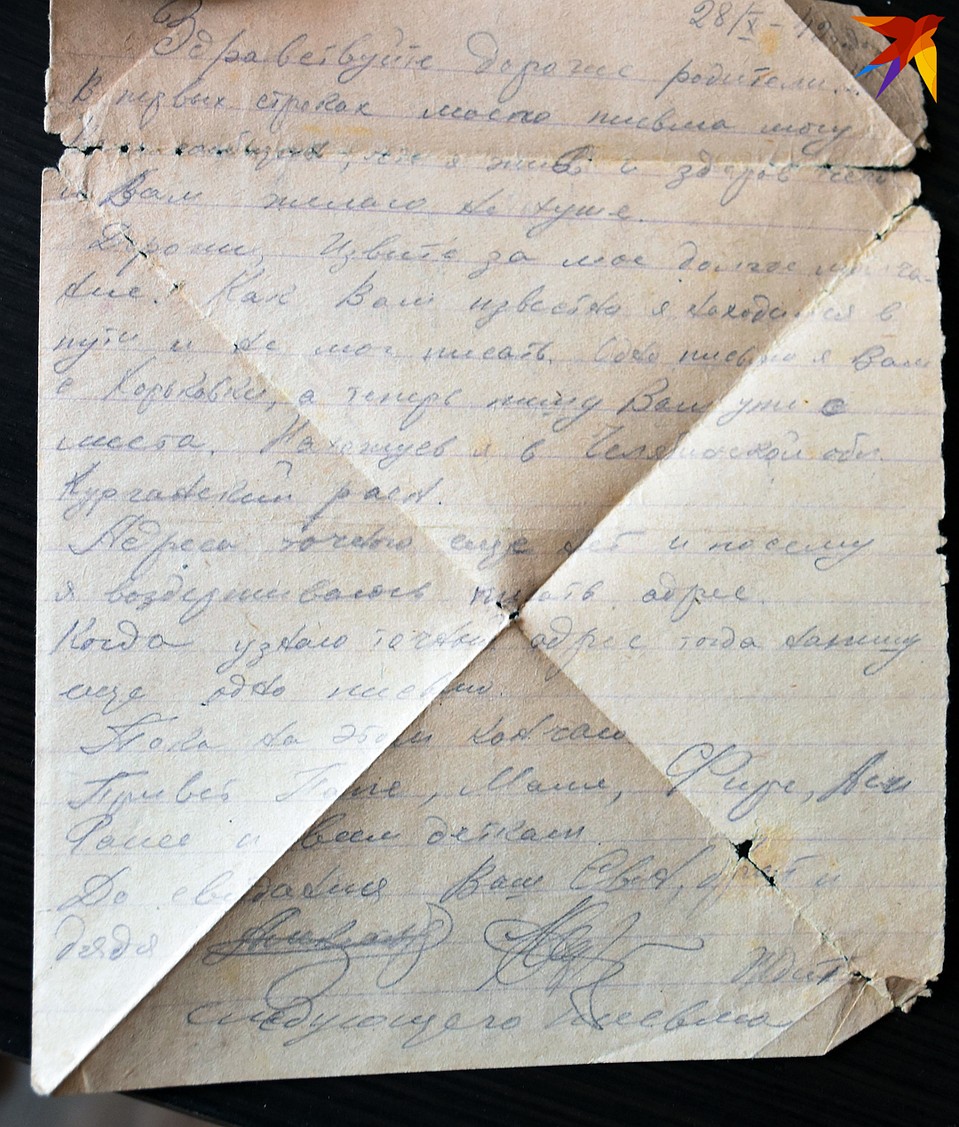 28/X-
Здравствуйте дорогие родители.
В первых строках моего письма могу
сообщить, что я жив и здоров чего
и Вам желаю не хуже.
Дорогие, Извите за мое долгое молча-
ние. Как Вам известно я находился в
пути и не мог писать. Одно письмо я Вам
с Хорьковки, а теперь пишу Вам уже с
места. Нахожусь я в Челябинской обл.
Курганский раен.
Адреса точного еще нет и посему
я воздерживаюсь писать адрес.
Когда узнаю точный адрес тогда напишу
еще одно письмо.
Пока на этом кончаю
Привет Папе, Маме, Фире,
Фаие и всем деткам
До свидания Ваш Сын, брат и
дядя
Ждите
следующего письма